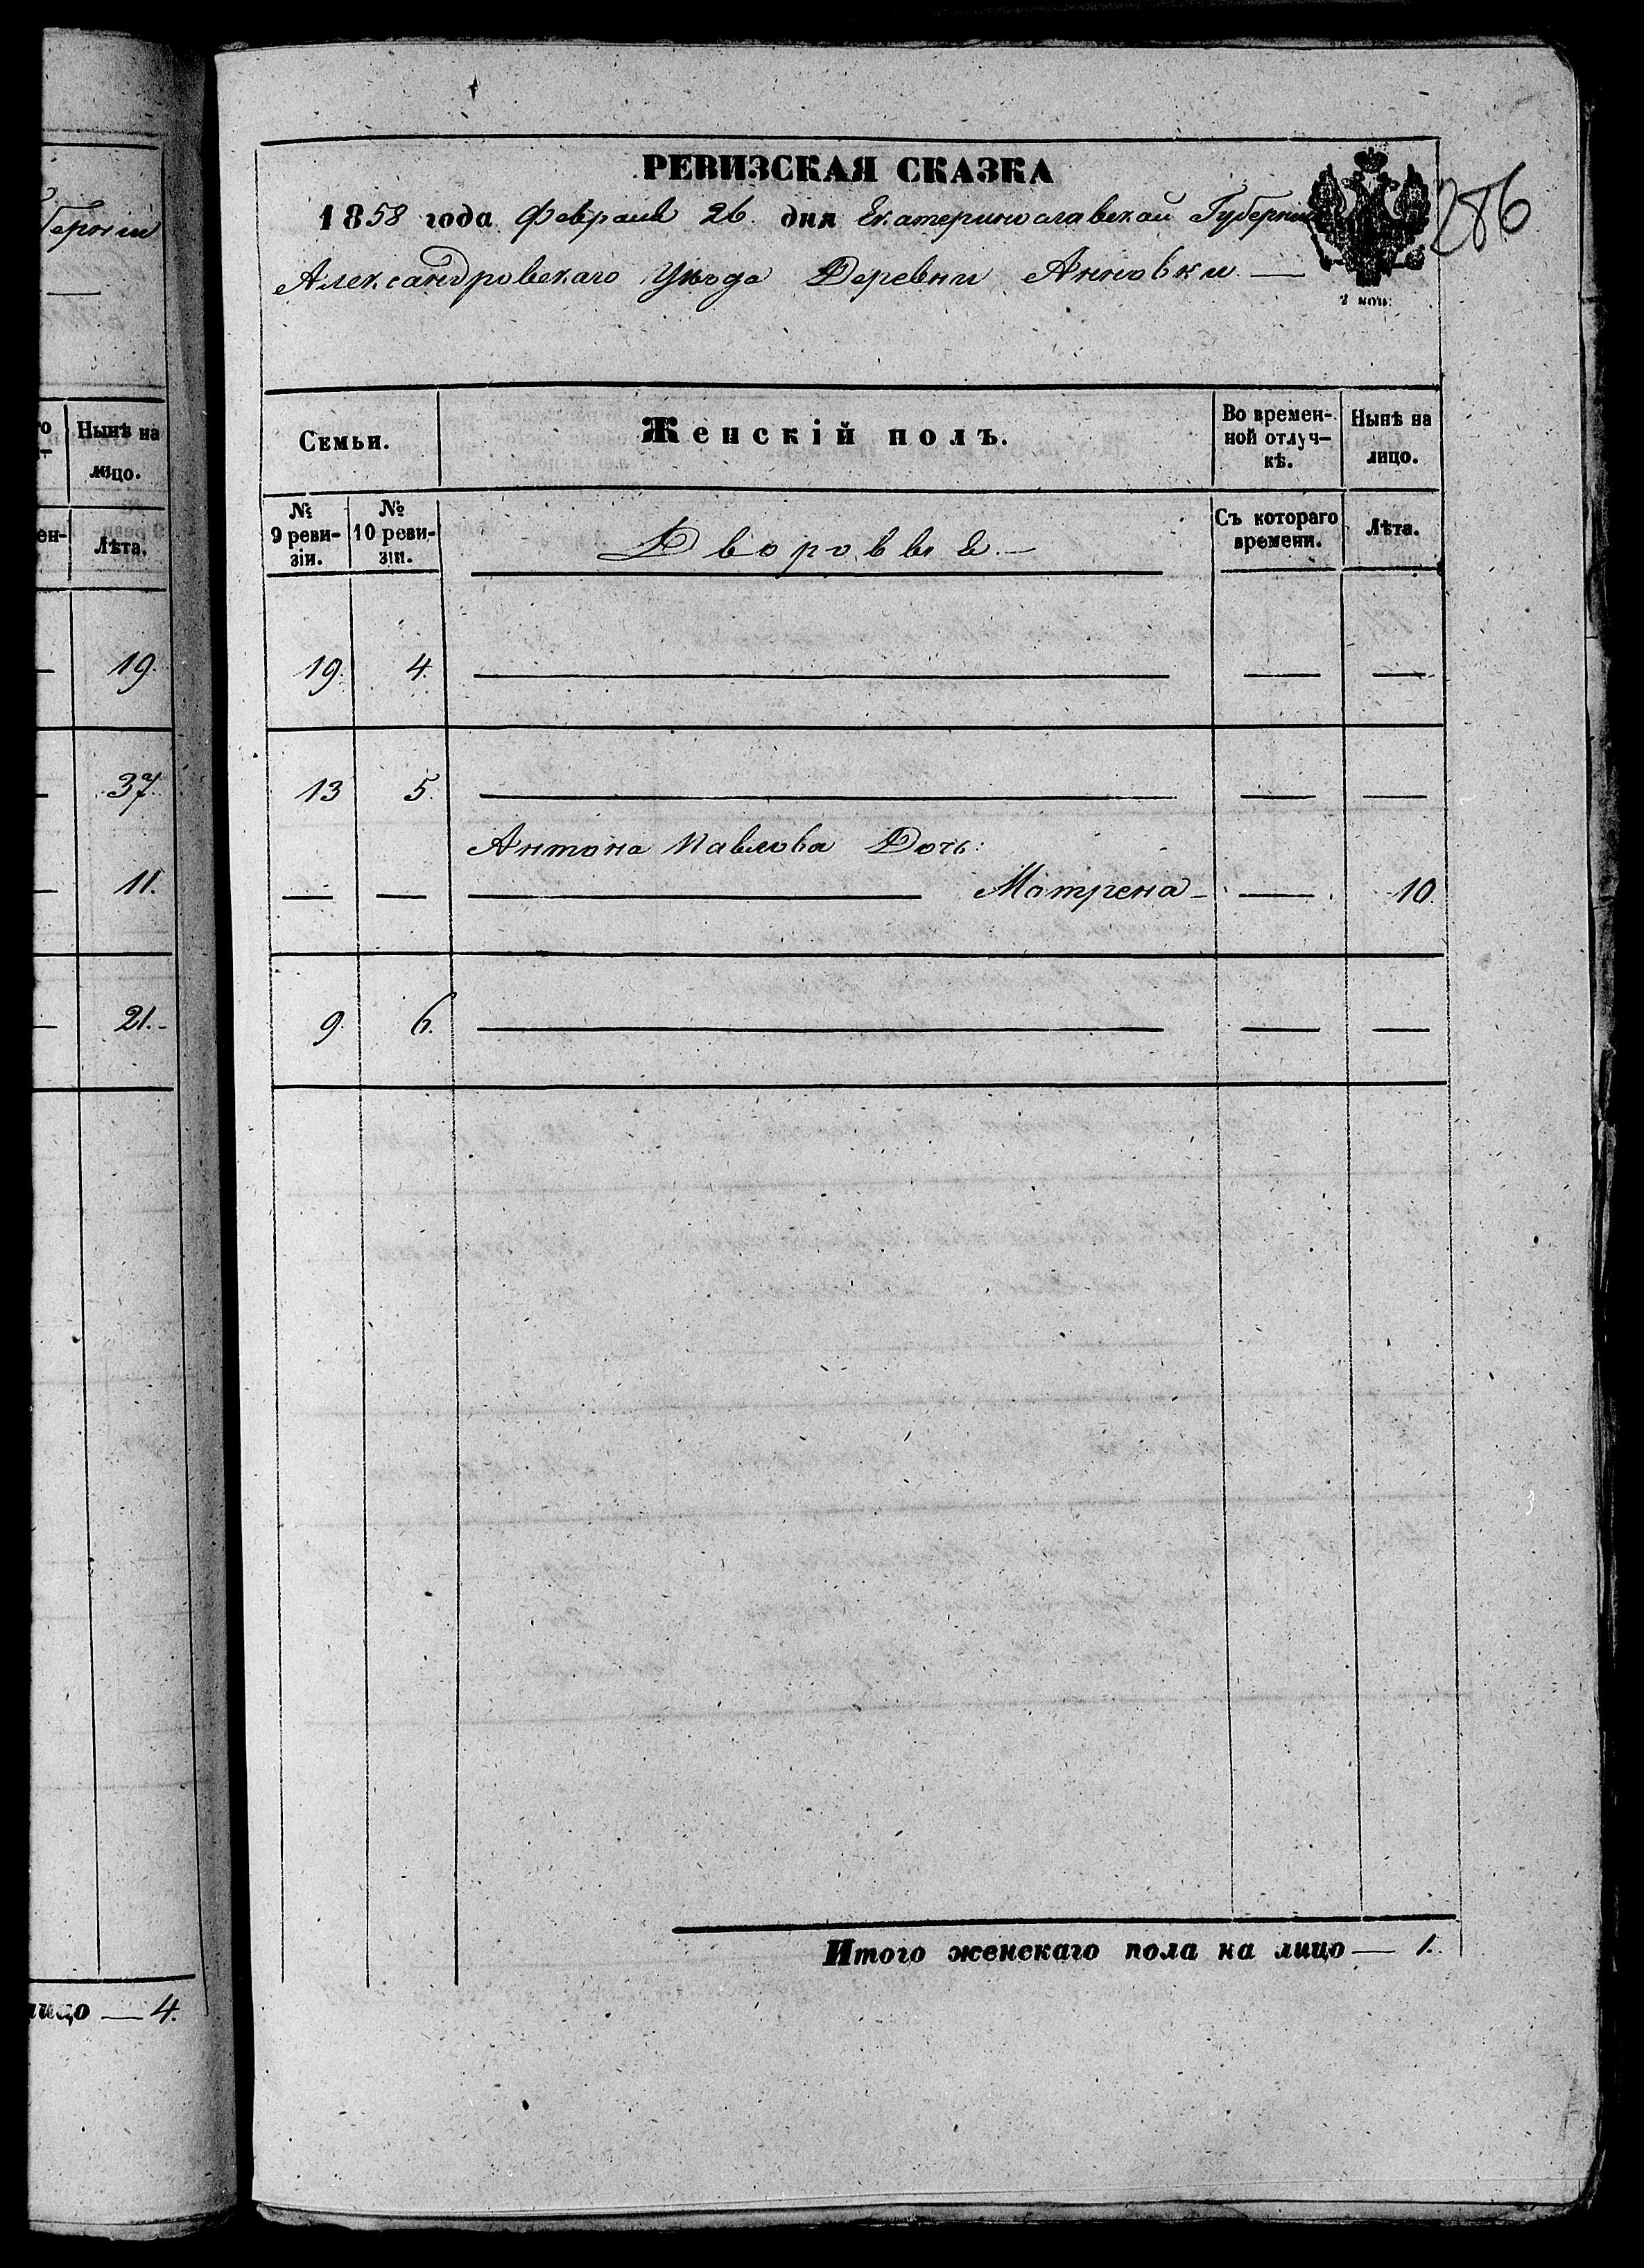 берніи
Нынѣ на
лицо.
ен-
Лѣта.
19.
37.
11.
21.
лицо — 4.
РЕВИЗСКАЯ СКАЗКА
286
1858 года Февраля 26. дня Екатеринославской Губерніи
Александровскаго Уѣзда Деревни Анновки —
2 коп:
Семьи.
Женскій полъ.
Во времен-
ной отлуч-
кѣ.
Нынѣ на
лицо.
№
9 реви-
зіи.
№
10 реви-
зіи.
Дворовые. —
Съ котораго
времени.
Лѣта.
19. 4. — — —
13 5. — — —
Антона Павлова Дочь:
— — — Матрена — — 10.
9. 6. — — —
Итого женскаго пола на лицо — 1.